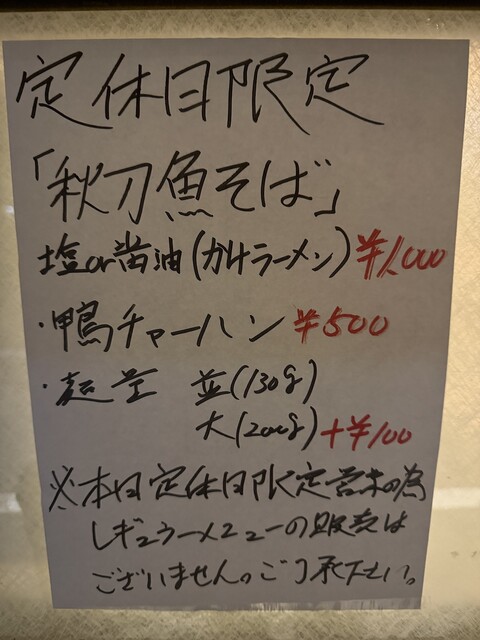 定休日限定
「秋刀魚そば」
塩or醤油(かけラーメン) ¥1,000
・鴨チャーハン ¥500
・麺量 並(130g)
大(200g) +¥100
※本日定休日限定営業の為
レギュラーメニューの販売は
ございません。ご了承下さい。